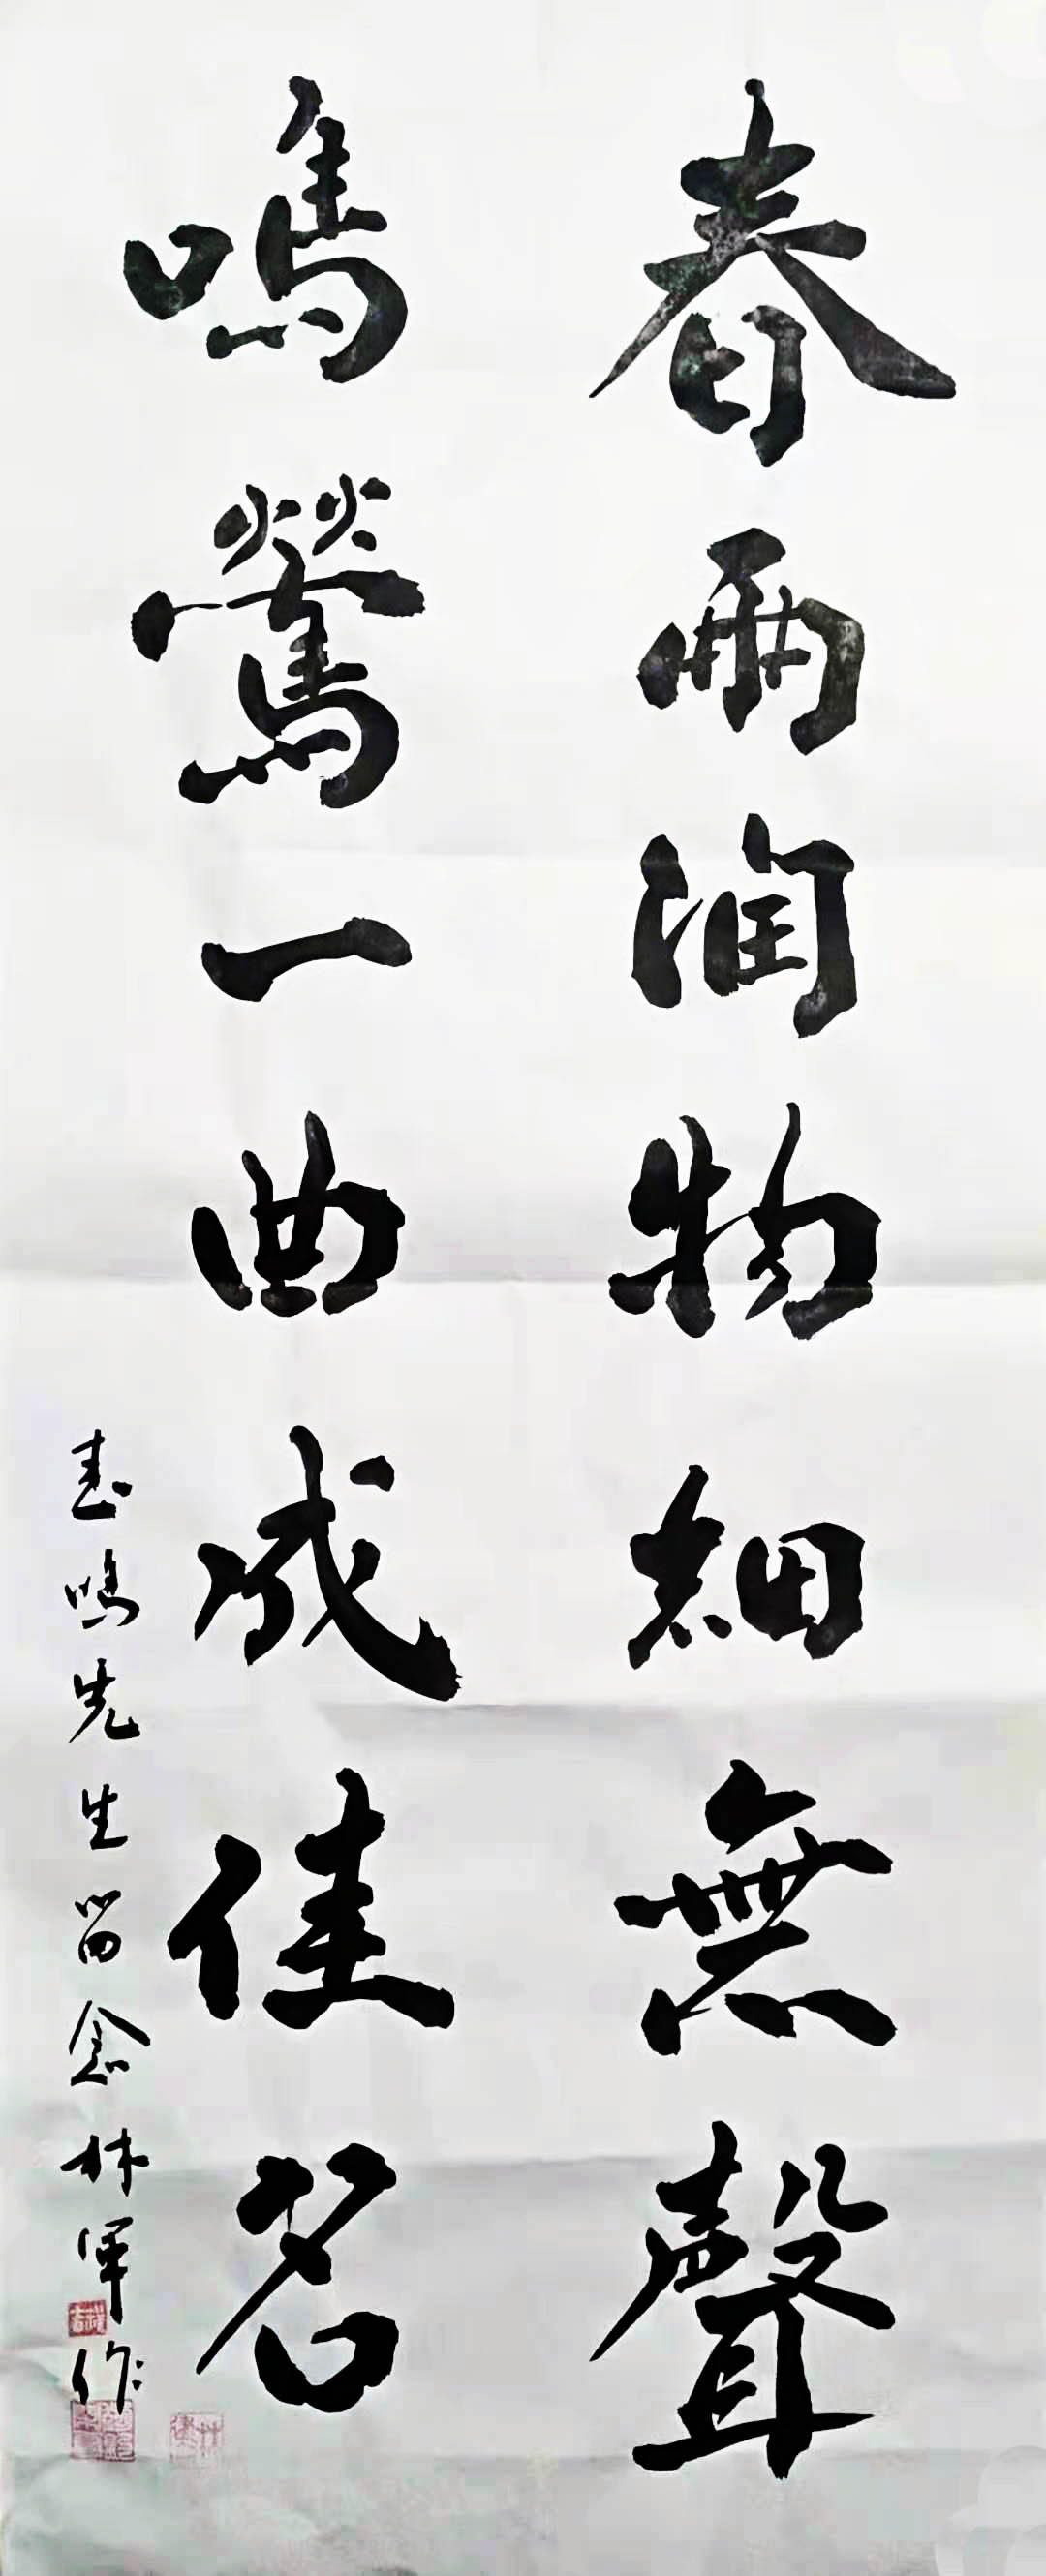 春雨润物細無聲
鳴鶯一曲成佳名
春鳴先生留念林軍作